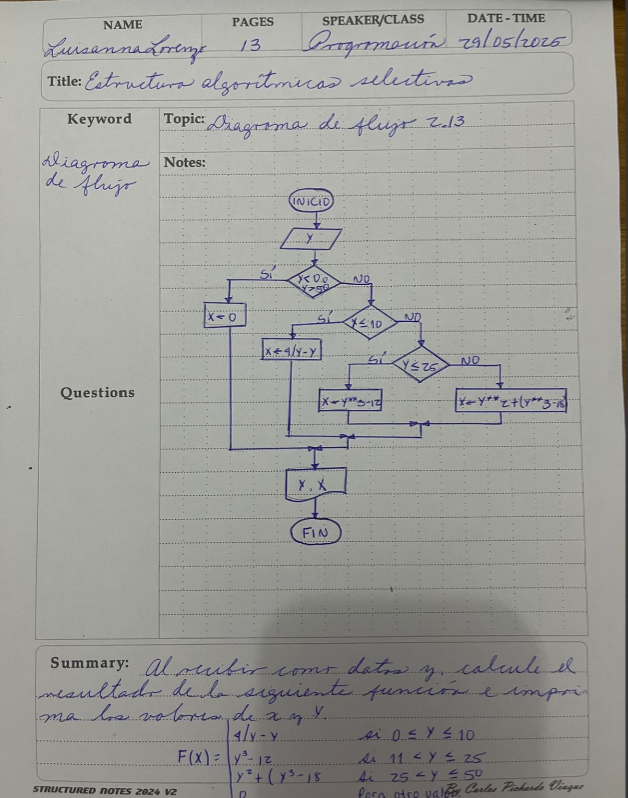 NAME PAGES SPEAKER/CLASS DATE - TIME
Luisanna Lorenzo 13 Programación 29/05/2025
Title: Estructura algorítmicas selectivas
Keyword
Topic: Diagrama de flujo 2.13
Diagrama de flujo
Notes:
INICIO
Y
Sí Y<0 o Y>50 NO
X←0
Sí Y≤10 NO
X←4/Y-Y
Sí Y≤25 NO
X←Y**3-12
X←Y**2+(Y**3-18)
Questions
X, X
FIN
Summary: Al recibir como datos y, calcule el
resultado de la siguiente función e impri-
ma los valores de x y Y.
4/Y-Y si 0 ≤ Y ≤ 10
F(X) = Y³-12 si 11 < Y ≤ 25
Y²+(Y³-18 si 25 < Y ≤ 50
0 Para otro valor
STRUCTURED NOTES 2024 V2 By Carlos Pichardo Viuque